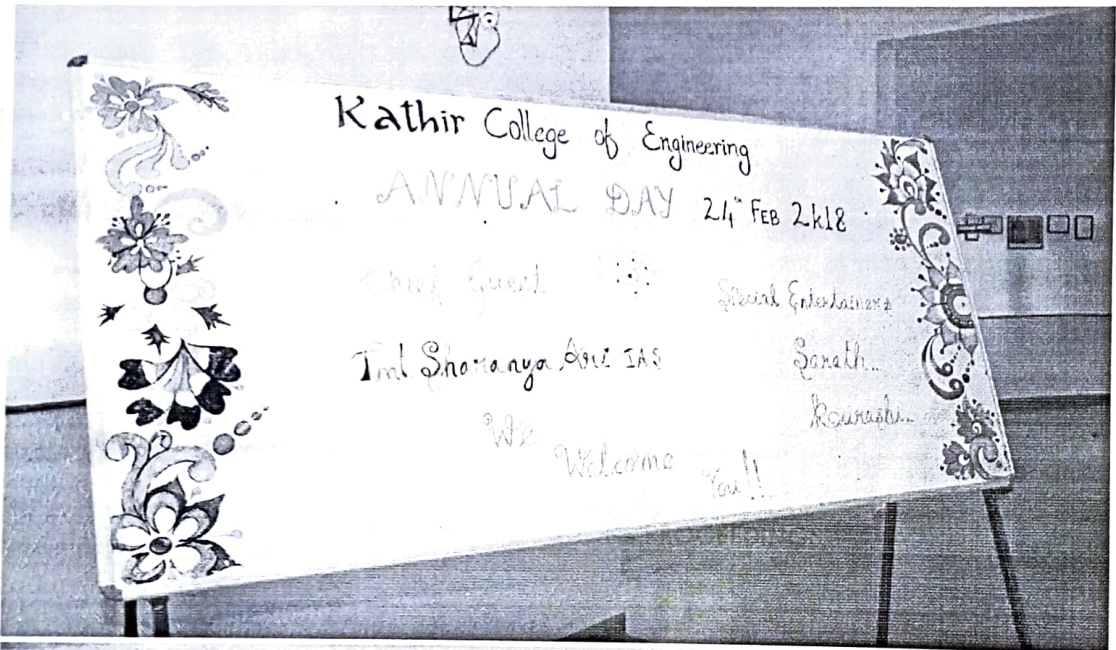 Kathir College of Engineering
ANNUAL DAY 24th FEB 2k18
Chief Guest
Special Entertainers
Tmt Sharanya Ari IAS
Sarath..
We
Welcome
You!!